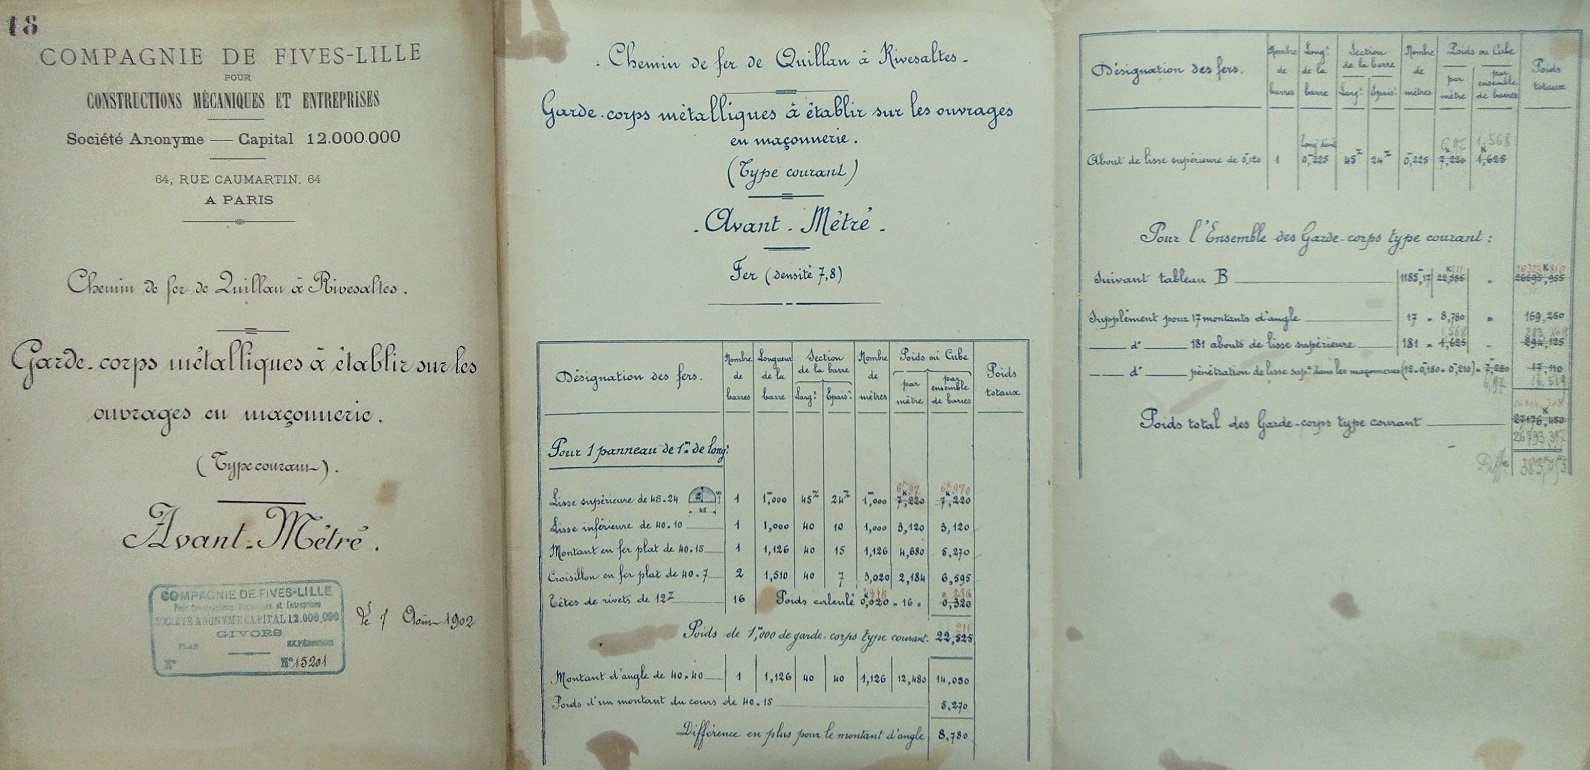 18
COMPAGNIE DE FIVES-LILLE
POUR
CONSTRUCTIONS MÉCANIQUES ET ENTREPRISES
Société Anonyme — Capital 12.000.000
64, RUE CAUMARTIN, 64
A PARIS
Chemin de fer de Quillan à Rivesaltes.
Garde-corps métalliques à établir sur les
ouvrages en maçonnerie.
(Type courant).
Avant-Métré.
COMPAGNIE DE FIVES-LILLE
Pour Constructions Mécaniques et Entreprises
SOCIÉTÉ ANONYME CAPITAL 12.000.000
GIVORS
PLAN EXPÉDITION
N° N° 15201
Août 1902
- Chemin de fer de Quillan à Rivesaltes -
Garde-corps métalliques à établir sur les ouvrages
en maçonnerie.
(Type courant)
- Avant-Métré -
Fer (densité 7,8)
Désignation des fers. Nombre de barres Longueur de la barre Section de la barre Larg^r Épais^r Nombre de mètres Poids ou Cube par mètre par ensemble de barres Poids totaux
Pour 1 panneau de 1^m de long^r
Lisse supérieure de 45.24 1 1,000 45 24 1,000 7,220 7,220
Lisse inférieure de 40.10 1 1,000 40 10 1,000 3,120 3,120
Montant en fer plat de 40.15 1 1,126 40 15 1,126 4,680 5,270
Croisillon en fer plat de 40.7 2 1,510 40 7 3,020 2,184 6,595
Têtes de rivets de 12 16 Poids calculé 0,020 × 16 = 0,320
Poids de 1,000 de garde-corps type courant. 22,525
Montant d'angle de 40.40 1 1,126 40 40 1,126 12,480 14,050
Poids d'un montant du cours de 40.15 5.270
Différence en plus pour le montant d'angle 8,780
Désignation des fers. Nombre de barres Long^r de la barre Section de la barre Larg^r Épais^r Nombre de mètres Poids ou Cube par mètre par ensemble de barres Poids totaux
1,568
About de lisse supérieure de 0,120 1 0,225 45 24 0,225 7,220 1,625
Pour l'Ensemble des Garde-corps type courant :
Suivant tableau B 1185,17 22,525 " 26695,955
Supplément pour 17 montants d'angle 17 - 8,780 " 149,260
d° 181 abouts de lisse supérieure 181 - 1,625 294,125
d° pénétration de lisse sup^re dans les maçonneries
Poids total des Garde-corps type courant 27176,450
26793,317
Diff^ce